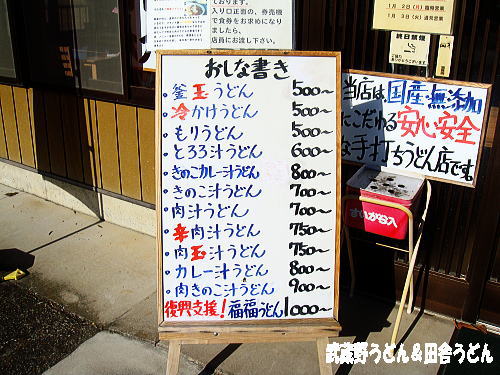 ております。
入り口正面の、券売機
で食券をお求めになり
ましたら、
店員にお渡し下さい。
1月2日(月)臨時営業
1月3日(火)通常営業
終日禁煙
おしな書き
・釜玉うどん 500〜
・冷かけうどん 500〜
・もりうどん 500〜
・とろろ汁うどん 600〜
・きのこカレー汁うどん 800〜
・きのこ汁うどん 700〜
・肉汁うどん 700〜
・辛肉汁うどん 750〜
・肉玉汁うどん 750〜
・カレー汁うどん 800〜
・肉きのこ汁うどん 900〜
復興支援!福福うどん 1000〜
当店は、国産・無添加
にこだわる安心安全
な手打ちうどん店です。
すいがら入
武蔵野うどん&田舎うどん